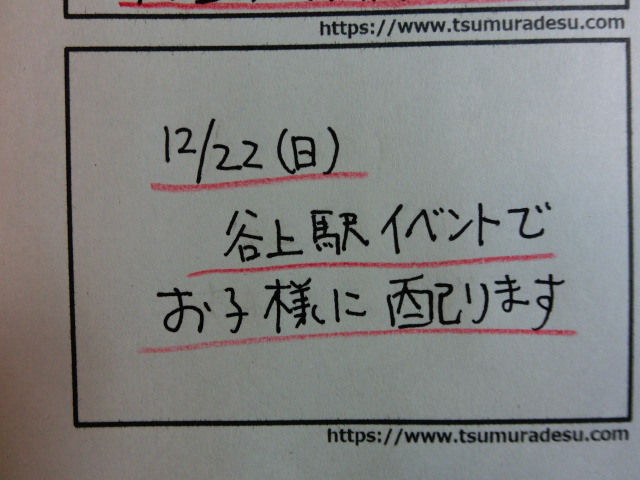 https://www.tsumuradesu.com
12/22(日)
谷上駅イベントで
お子様に配ります
https://www.tsumuradesu.com